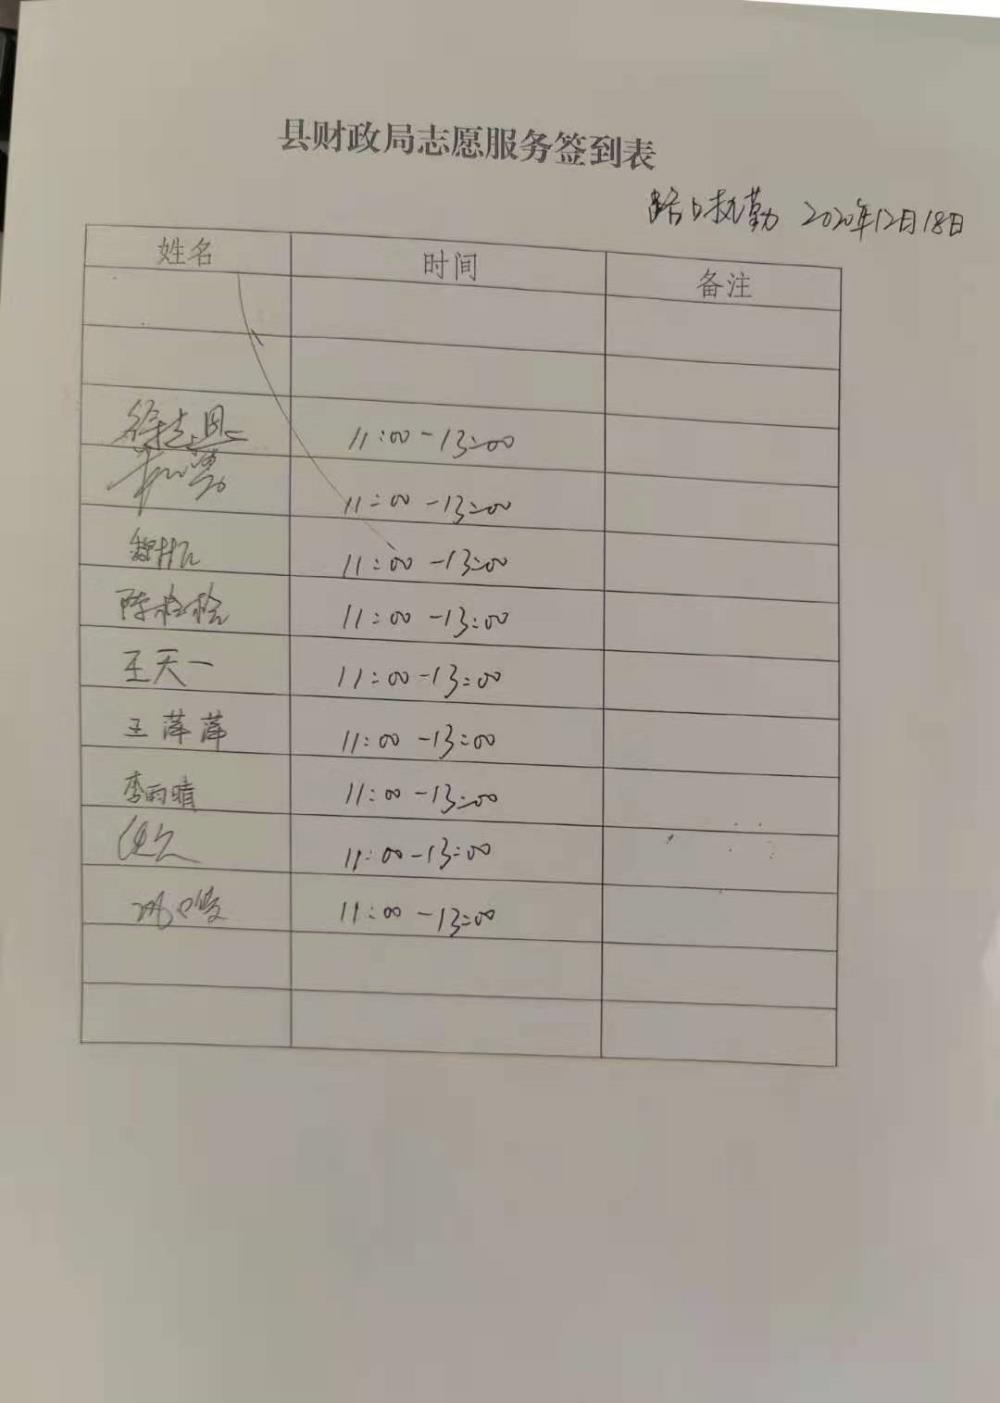 县财政局志愿服务签到表
路口执勤 2020年12月18日
姓名 时间 备注
11:00-13:00
11:00-13:00
11:00-13:00
陈栓栓 11:00-13:00
王天一 11:00-13:00
王萍萍 11:00-13:00
李雨晴 11:00-13:00
11:00-13:00
11:00-13:00